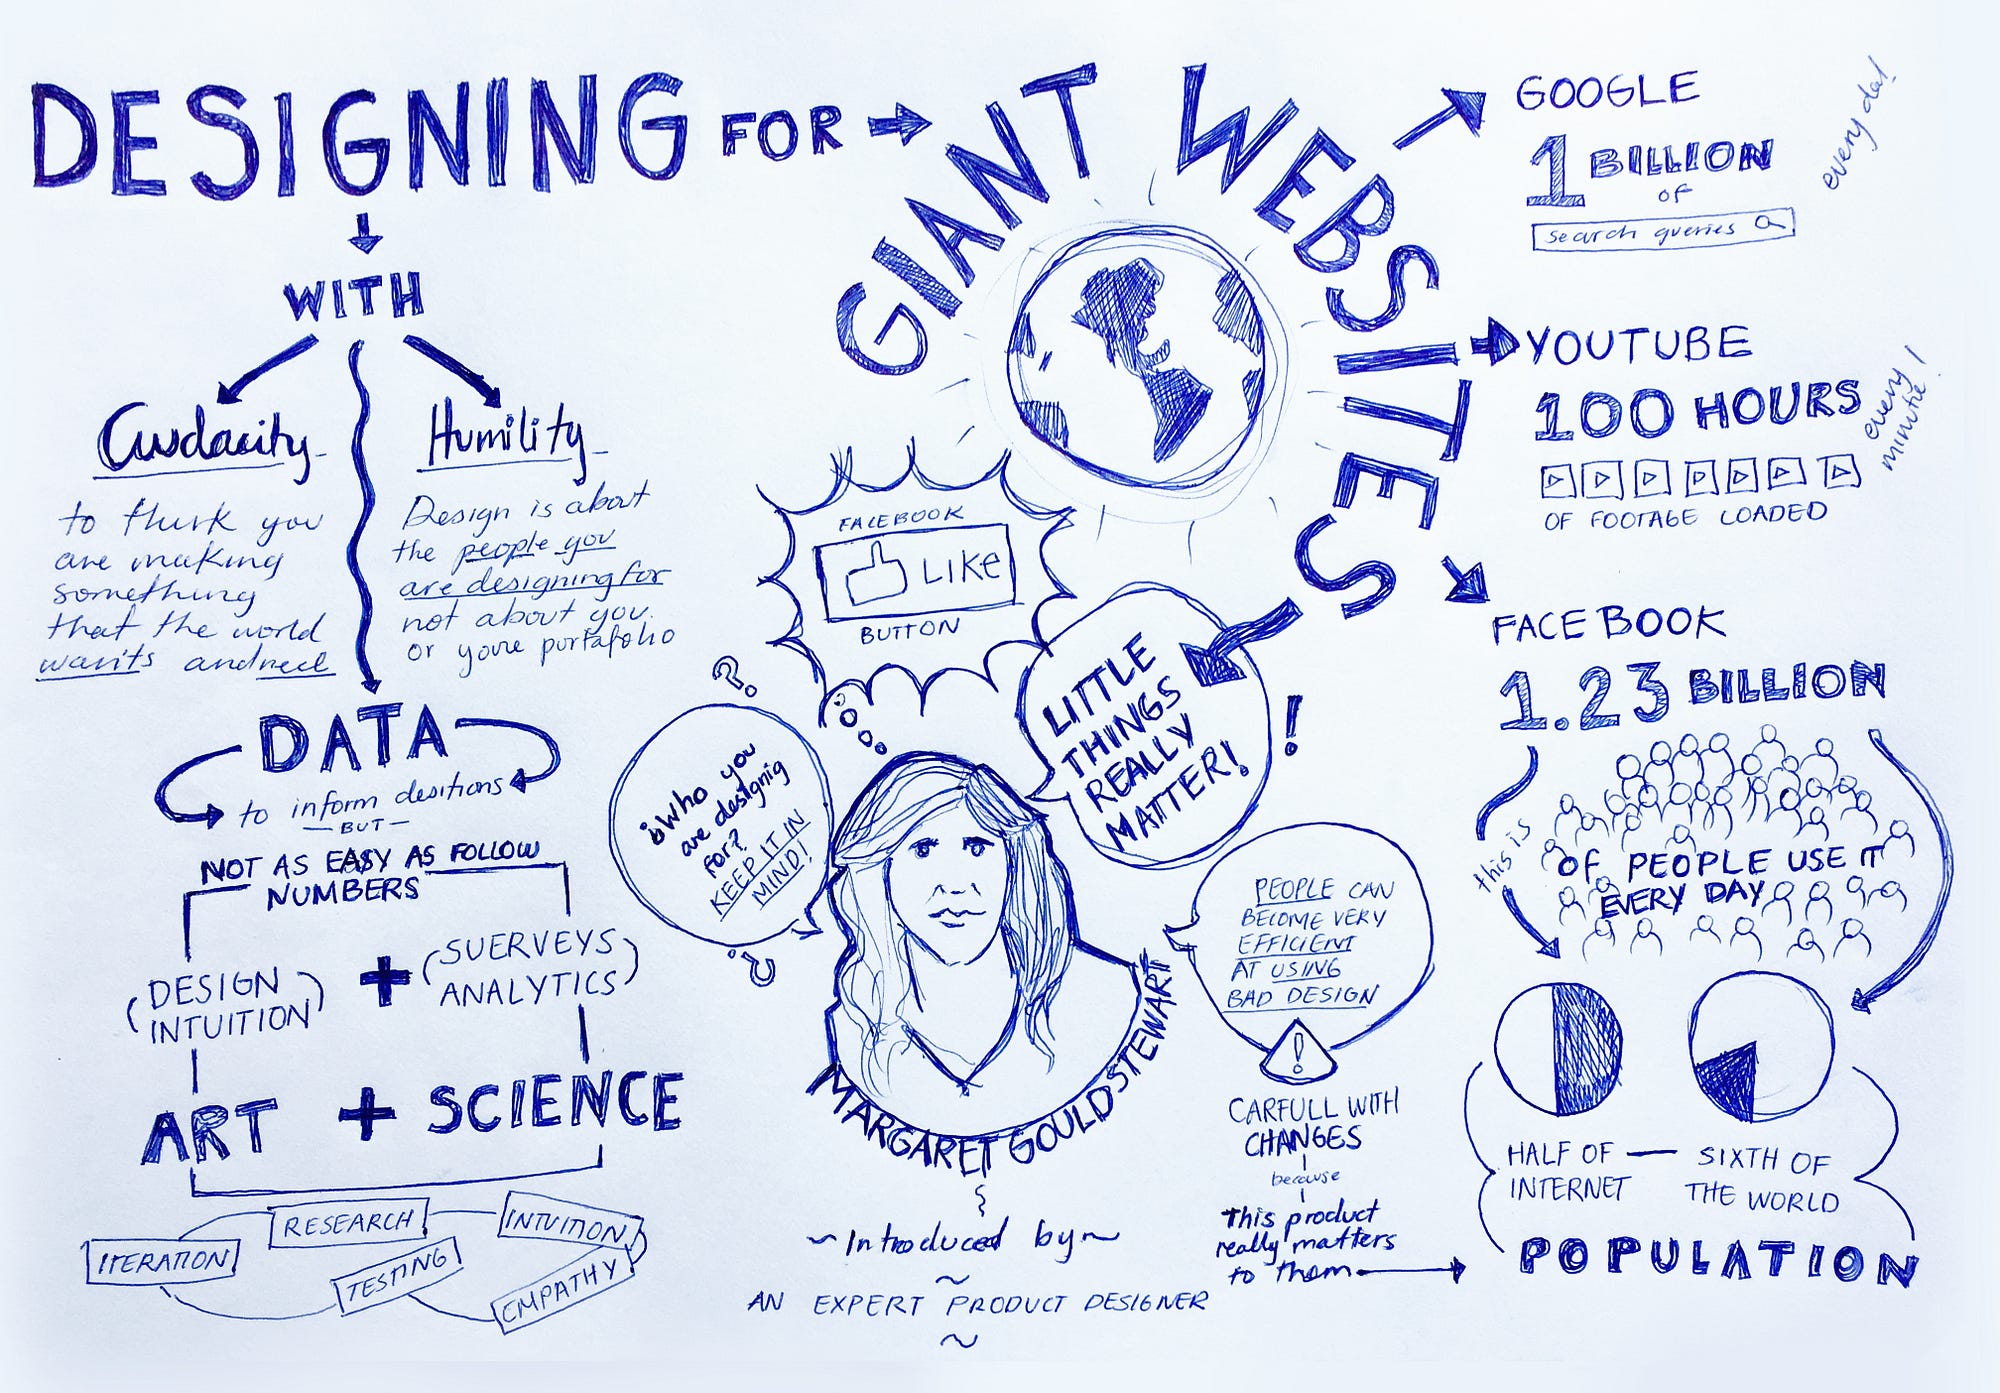 DESIGNING FOR
GIANT WEBSITES
WITH
Audacity
to think you
are making
something
that the world
wants and need
Humility
Design is about
the people you
are designing for
not about you.
or youre portafolio
DATA
to inform desitions
BUT
NOT AS EASY AS FOLLOW
NUMBERS
(DESIGN
INTUITION)
+
(SUERVEYS
ANALYTICS)
ART + SCIENCE
ITERATION
RESEARCH
TESTING
INTUITION
EMPATHY
FACEBOOK
LIKE
BUTTON
LITTLE
THINGS
REALLY
MATTER!
!
?
¿Who you
are designig
for?
KEEP IT IN
MIND!
?
MARGARET GOULD STEWART
~Introduced by~
~
AN EXPERT PRODUCT DESIGNER
~
PEOPLE CAN
BECOME VERY
EFFICIENT
AT USING
BAD DESIGN
!
CARFULL WITH
CHANGES
because
This product
really matters
to them
GOOGLE
1 BILLION
OF
search queries
every day!
YOUTUBE
100 HOURS
every
minute!
OF FOOTAGE LOADED
FACEBOOK
1.23 BILLION
OF PEOPLE USE IT
EVERY DAY
this is
HALF OF
INTERNET
SIXTH OF
THE WORLD
POPULATION